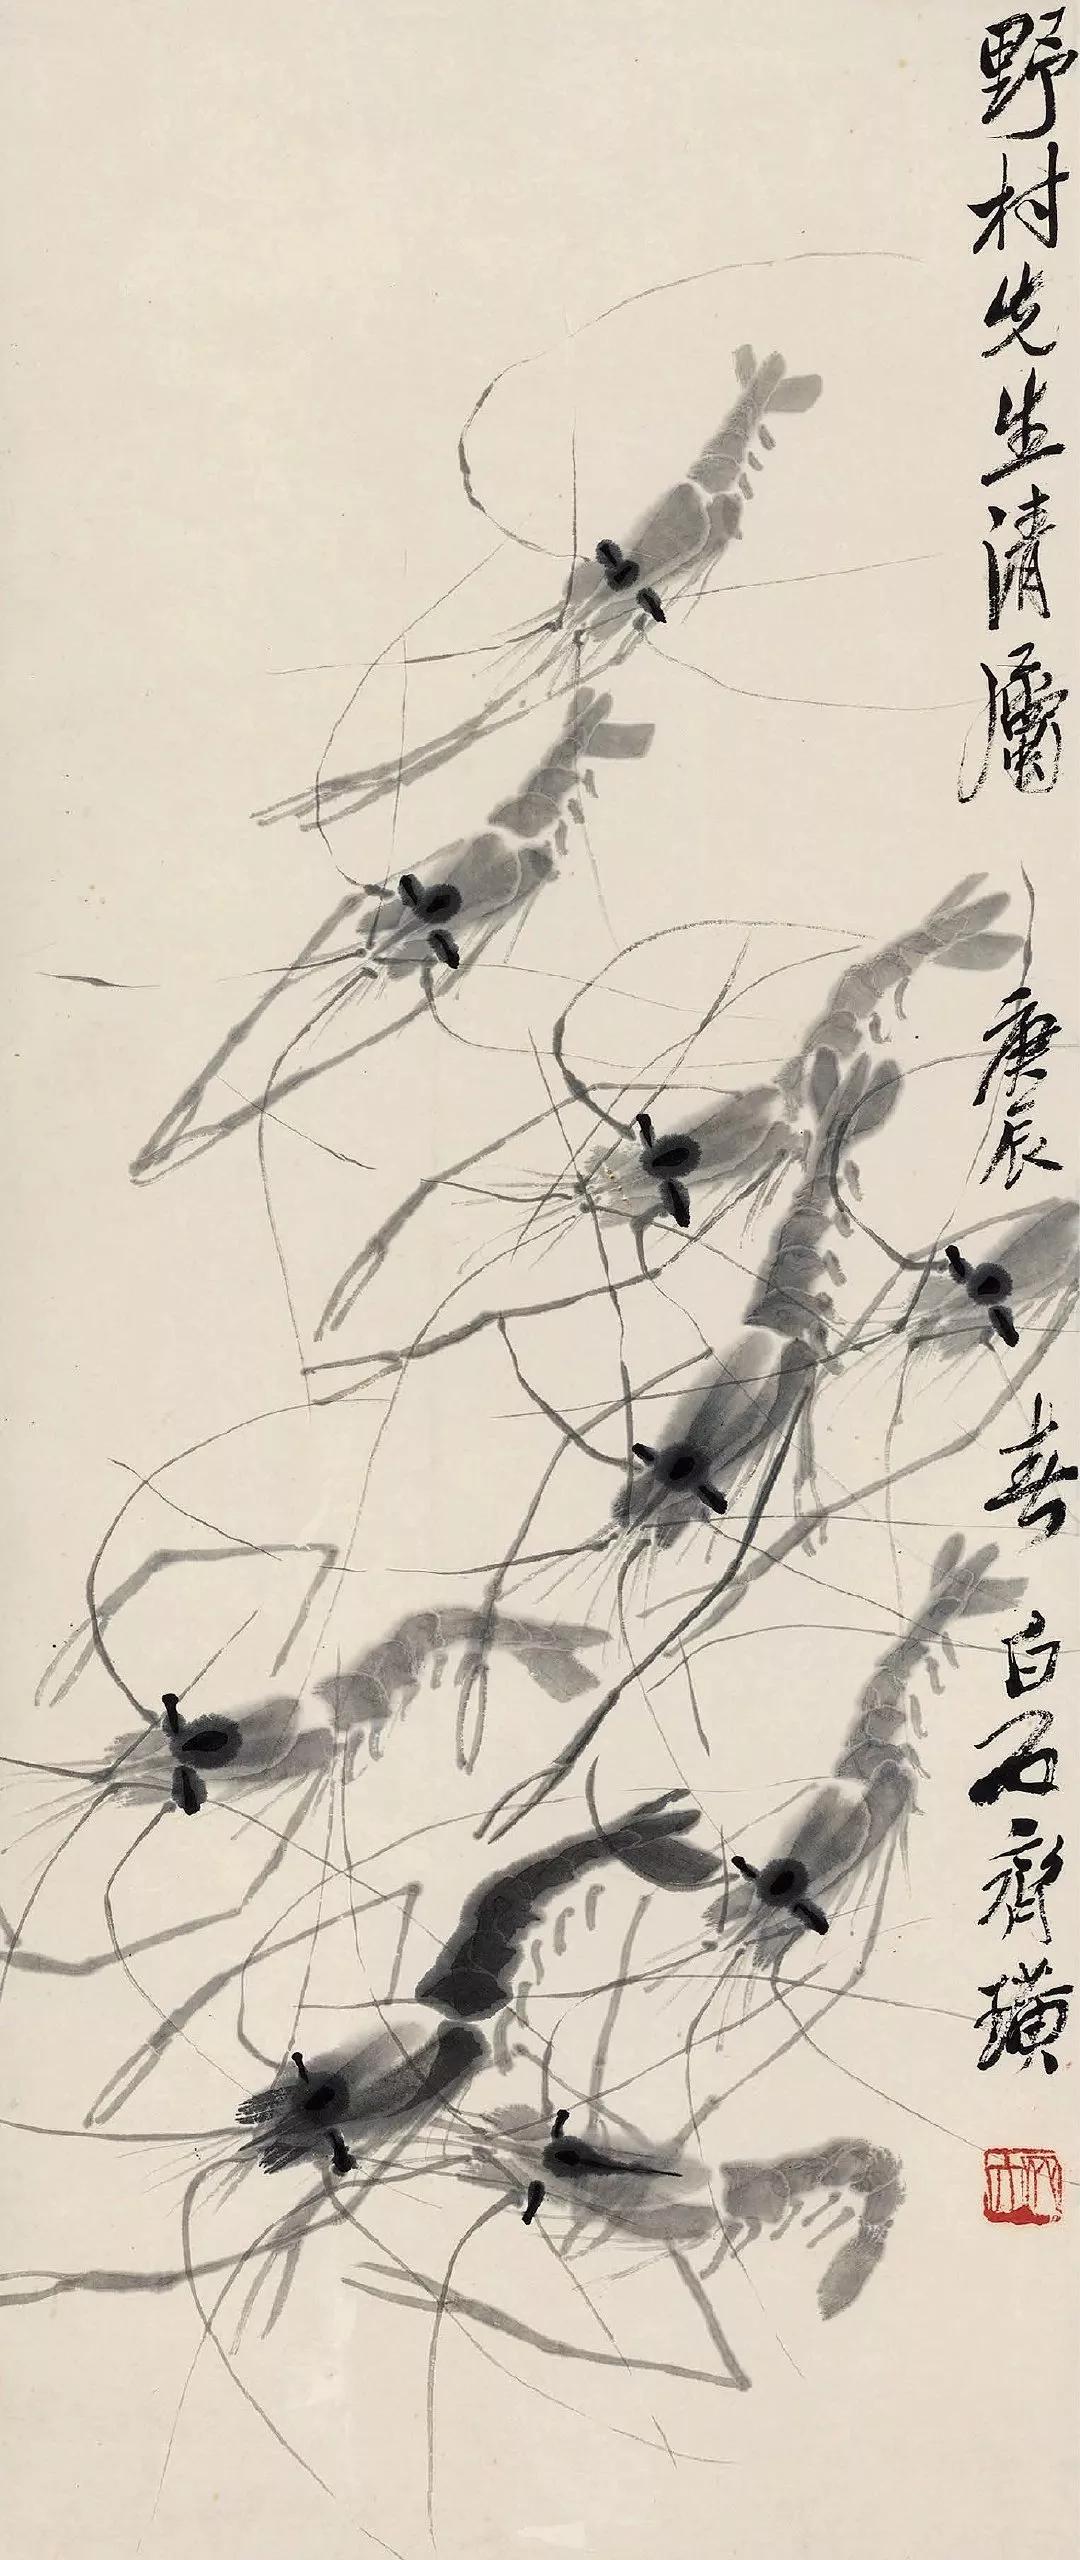 野村先生清属 庚辰 春 白石齊璜